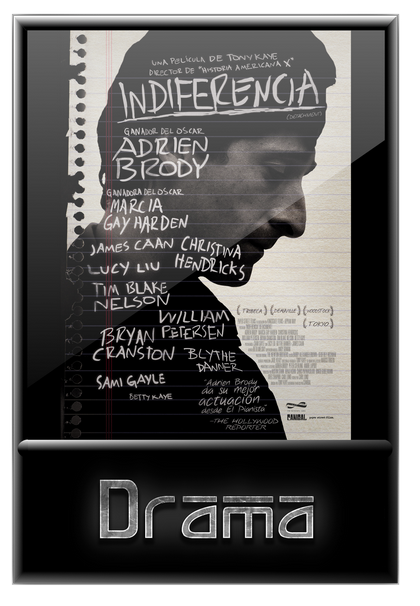 UNA PELÍCULA DE TONY KAYE
DIRECTOR DE "HISTORIA AMERICANA X"
INDIFERENCIA
(DETACHMENT)
GANADOR DEL OSCAR
ADRIEN
BRODY
GANADORA DEL OSCAR
MARCIA
GAY HARDEN
JAMES CAAN CHRISTINA
HENDRICKS
LUCY LIU
TIM BLAKE
NELSON
WILLIAM
PETERSEN
BRYAN
CRANSTON
BLYTHE
DANNER
SAMI GAYLE
BETTY KAYE
"Adrien Brody
da su mejor
actuación
desde El Pianista"
-THE HOLLYWOOD
REPORTER
(TRIBECA) (DEAUVILLE) (WOODSTOCK)
(TOKYO)
Drama